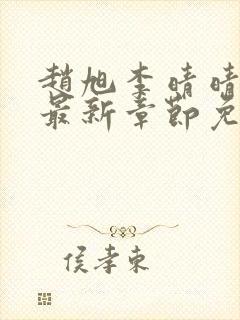 趙旭李晴晴
最新章節免
侯孝東